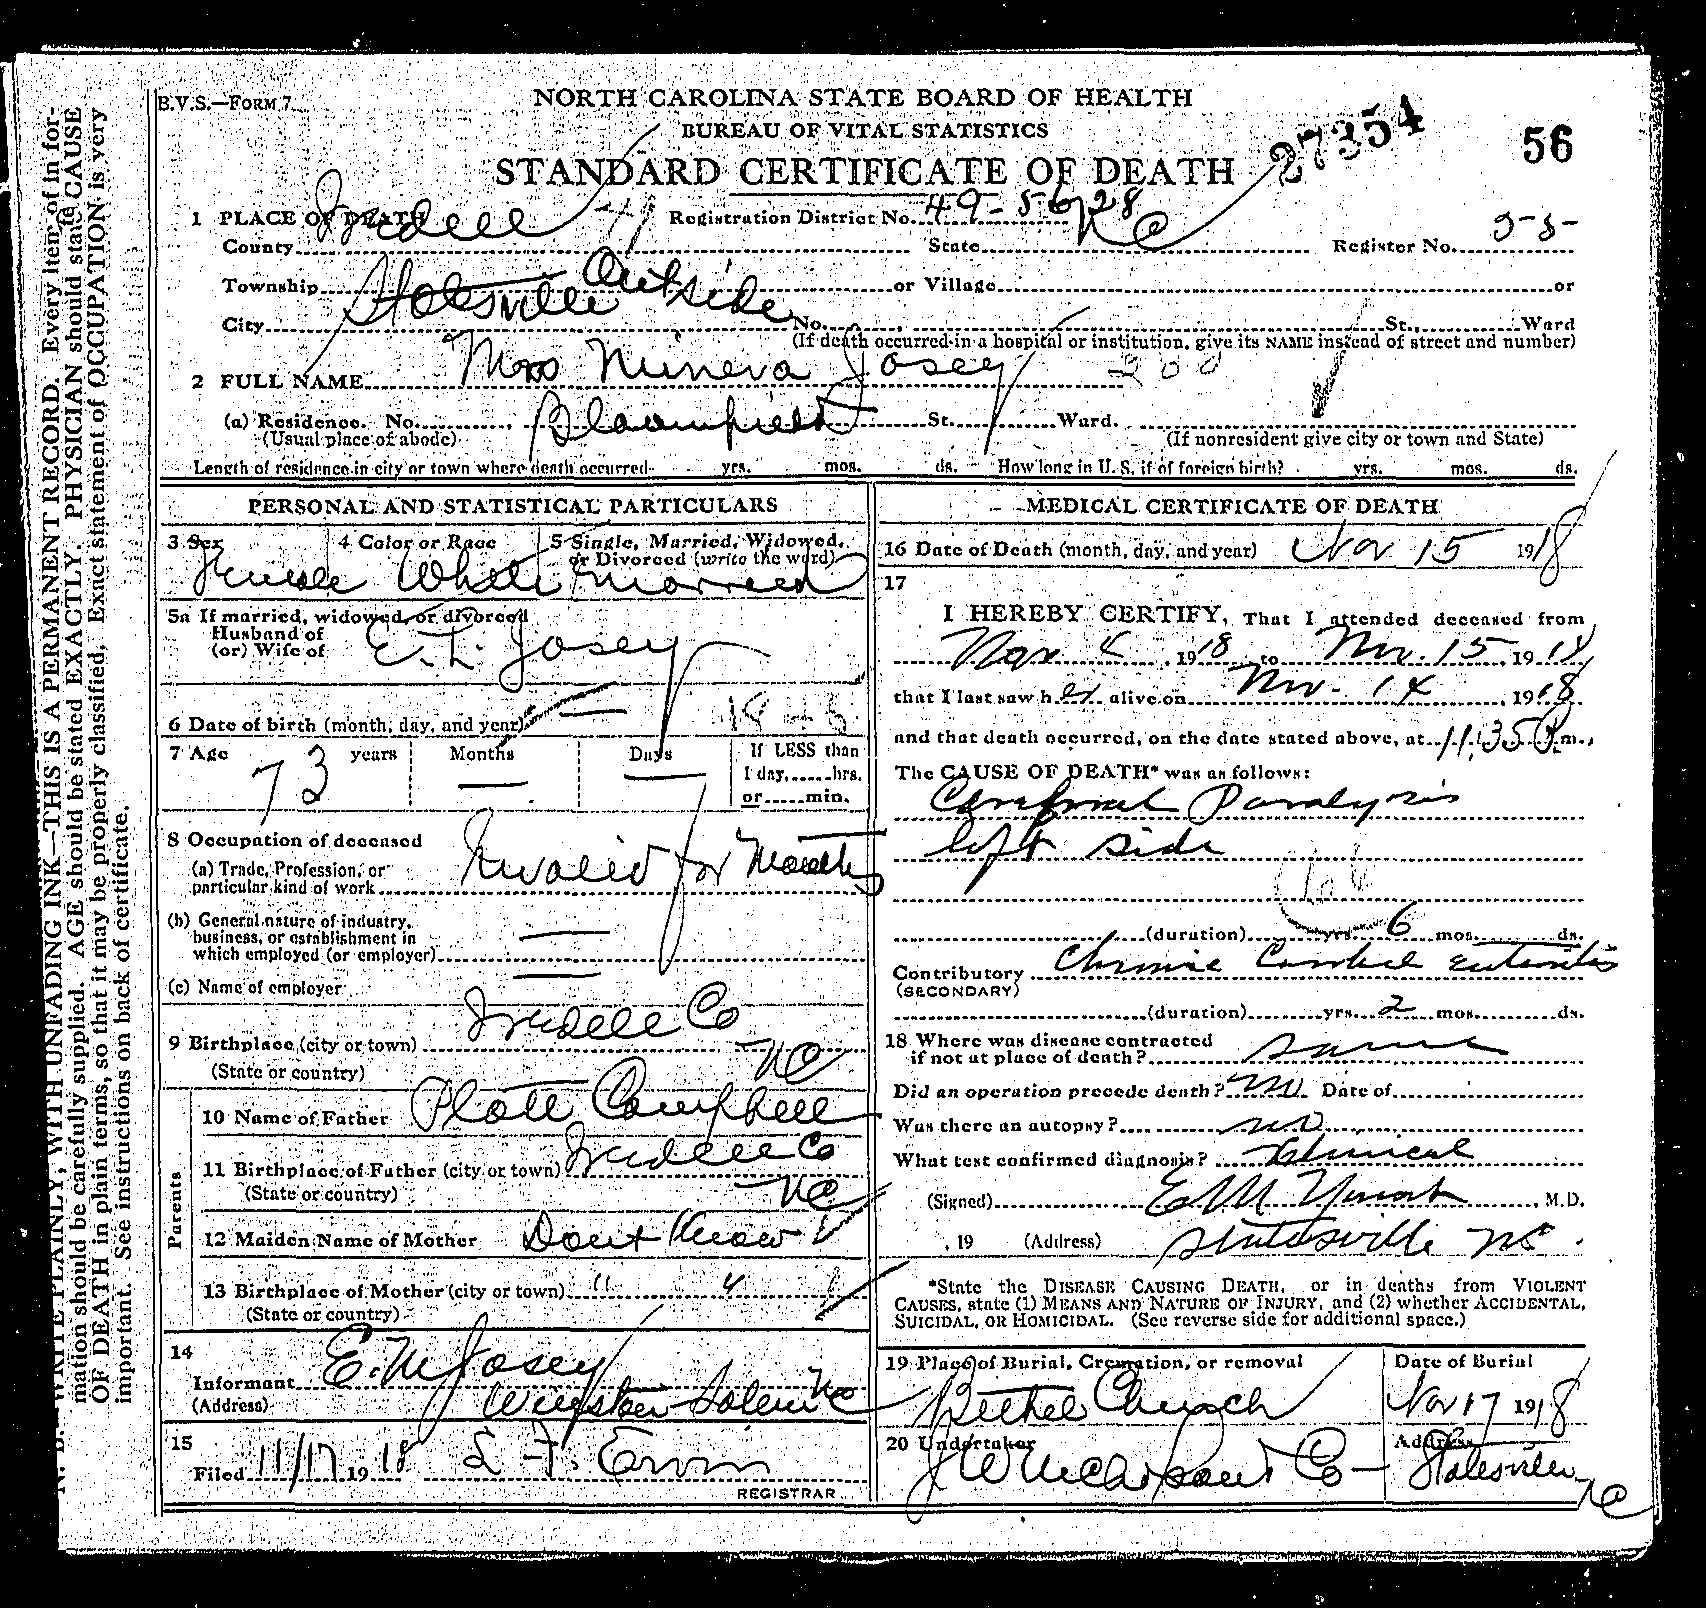 B.V.S.—FORM 7
NORTH CAROLINA STATE BOARD OF HEALTH
BUREAU OF VITAL STATISTICS
STANDARD CERTIFICATE OF DEATH
27354
56
1 PLACE OF DEATH
Registration District No. 49-5628
County Iredell State NC Register No. 55
Township Statesville Outside or Village or
City No. St., Ward
(If death occurred in a hospital or institution, give its NAME instead of street and number)
2 FULL NAME Mrs Minerva Josey
(a) Residence. No. Bloomfield St. Ward.
(Usual place of abode) (If nonresident give city or town and State)
Length of residence in city or town where death occurred yrs. mos. ds. How long in U. S. if of foreign birth? yrs. mos. ds.
PERSONAL AND STATISTICAL PARTICULARS
3 Sex 4 Color or Race 5 Single, Married, Widowed, or Divorced (write the word)
Female White married
5a If married, widowed, or divorced
Husband of
(or) Wife of E. L. Josey
6 Date of birth (month, day, and year) —
7 Age 73 years Months — Days — If LESS than
1 day, hrs.
or min.
8 Occupation of deceased
(a) Trade, Profession, or
particular kind of work Invalid for Months
(b) General nature of industry,
business, or establishment in
which employed (or employer) —
(c) Name of employer —
9 Birthplace (city or town) Iredell Co
(State or country) NC
Parents
10 Name of Father Platt Campbell
11 Birthplace of Father (city or town) Iredell Co
(State or country) NC
12 Maiden Name of Mother Dont Know
13 Birthplace of Mother (city or town) " "
(State or country)
14
Informant E. M Josey
(Address) Winston-Salem NC
15
Filed 11/17 1918 Ervin
REGISTRAR
MEDICAL CERTIFICATE OF DEATH
16 Date of Death (month, day, and year) Nov 15 1918
17
I HEREBY CERTIFY, That I attended deceased from
Nov 4, 1918 to Nov. 15, 1918
that I last saw her alive on Nov. 14, 1918
and that death occurred, on the date stated above, at 11:35 P. m.,
The CAUSE OF DEATH* was as follows:
Paralysis
left side
(duration) yrs. 6 mos. ds.
Contributory Chronic
(SECONDARY)
(duration) yrs. 2 mos. ds.
18 Where was disease contracted
if not at place of death? same
Did an operation precede death? no Date of
Was there an autopsy? no
What test confirmed diagnosis? Clinical
(Signed) , M.D.
, 19 (Address) Statesville NC.
*State the DISEASE CAUSING DEATH, or in deaths from VIOLENT
CAUSES, state (1) MEANS AND NATURE OF INJURY, and (2) whether ACCIDENTAL,
SUICIDAL, OR HOMICIDAL. (See reverse side for additional space.)
19 Place of Burial, Cremation, or removal Date of Burial
Bethel Church Nov 17 1918
20 Undertaker Address
Co Statesville
NC
N. B.—WRITE PLAINLY, WITH UNFADING INK—THIS IS A PERMANENT RECORD. Every item of in for-
mation should be carefully supplied. AGE should be stated EXACTLY. PHYSICIAN should state CAUSE
OF DEATH in plain terms, so that it may be properly classified. Exact statement of OCCUPATION is very
important. See instructions on back of certificate.